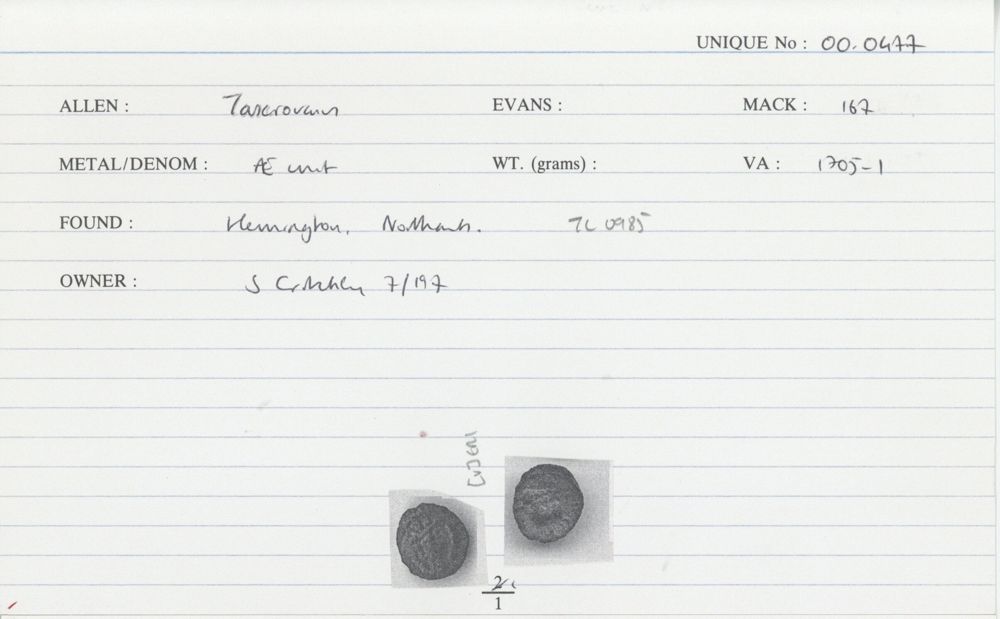 UNIQUE No : 00.0477
ALLEN : Tasciovanus EVANS : MACK : 167
METAL/DENOM : Æ unit WT. (grams) : VA : 1705-1
FOUND : Hemington, Northants. TL 0985
OWNER : S Critchley 7/197
[V]ERL
2
1